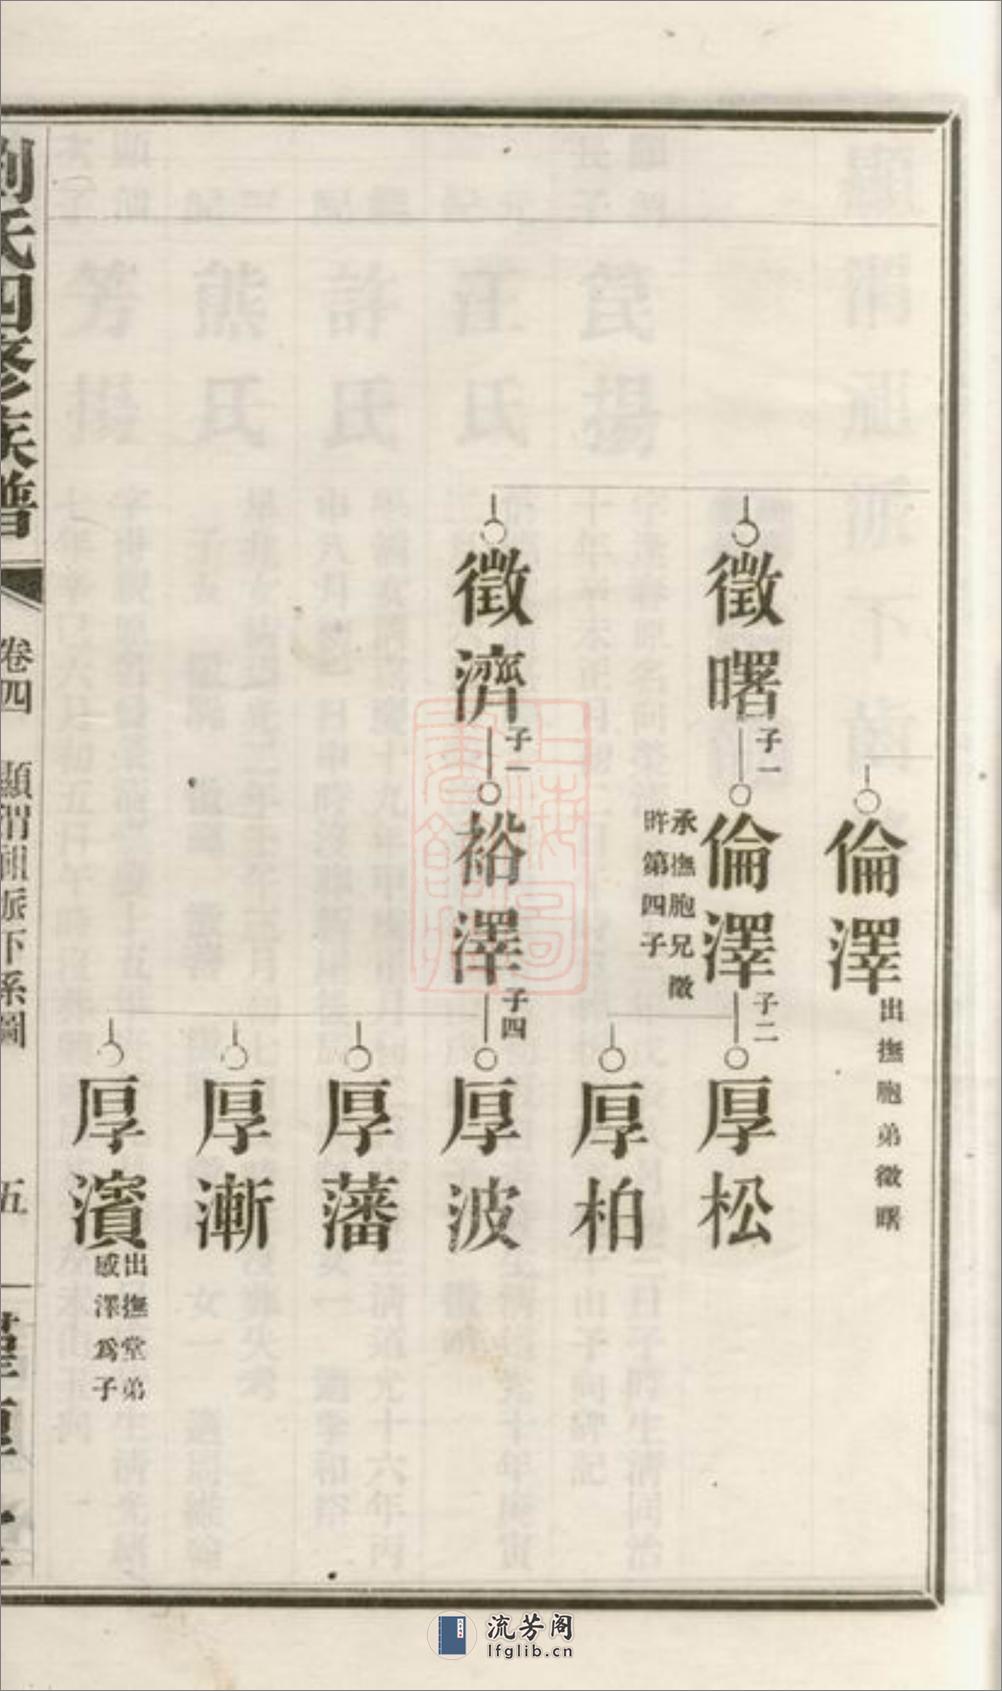 倫澤
出撫胞弟徵曙
徵曙
子一
倫澤
承撫胞兄徵
昨第四子
子二
厚松
厚柏
徵濟
子一
裕澤
子四
厚波
厚藩
厚漸
厚濱
出撫堂弟
感澤為子
劉氏四修族譜
卷四
顯渭祖派下系圖
五
流芳阁
lfglib.cn